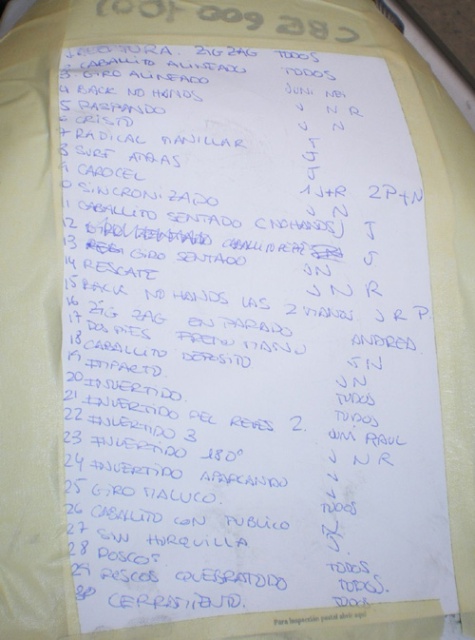 CBR 600 1000
ZIG ZAG TODOS
CABALLITO ALINEADO TODOS
3 GIRO ALINEADO
4 BACK NO HANDS JUNI NEI
5 RASPANDO J N R
6 CRISTO J N
7 RADICAL MANILLAR J
8 SURF ATRAS J
9 CAROCEL J
SINCRONIZADO 1J+R 2P+N
CABALLITO SENTADO (NO HANDS) J N
12 J
13 GIRO SENTADO
14 RESCATE J N
15 BACK NO HANDS LAS 2 MANOS J R P
16 ZIG ZAG EN PARADO
17 DOS PIES MANO ANDREA
18 CABALLITO DEPOSITO J N
19 J N
20 INVERTIDO TODOS
21 INVERTIDO DEL REVES 2 TODOS
22 INVERTIDO 3 JUNI RAUL
23 INVERTIDO 180° J N R
24 INVERTIDO APARCANDO J
25 GIRO MALUCO. J
26 CABALLITO CON PUBLICO TODOS
27 SIN HORQUILLA
28 ROSCOS
29 ROSCOS TODOS
30 CERRAMIENTO. TODOS.
TODOS
Para inspección postal abrir aquí